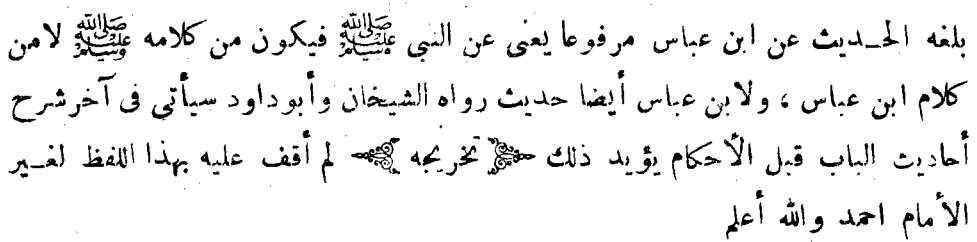 بلغه الحـديث عن ابن عباس مرفوعا يعنى عن النبي ﷺ فيكون من كلامه ﷺ لامن
كلام ابن عباس ، ولابن عباس أيضا حديث رواه الشيخان وأبو داود سيأتى فى آخر شرح
أحاديث الباب قبل الأحكام يؤيد ذلك ﴿ تخريجه ﴾ لم أقف عليه بهذا اللفظ لغـير
الأمام احمد والله أعلم